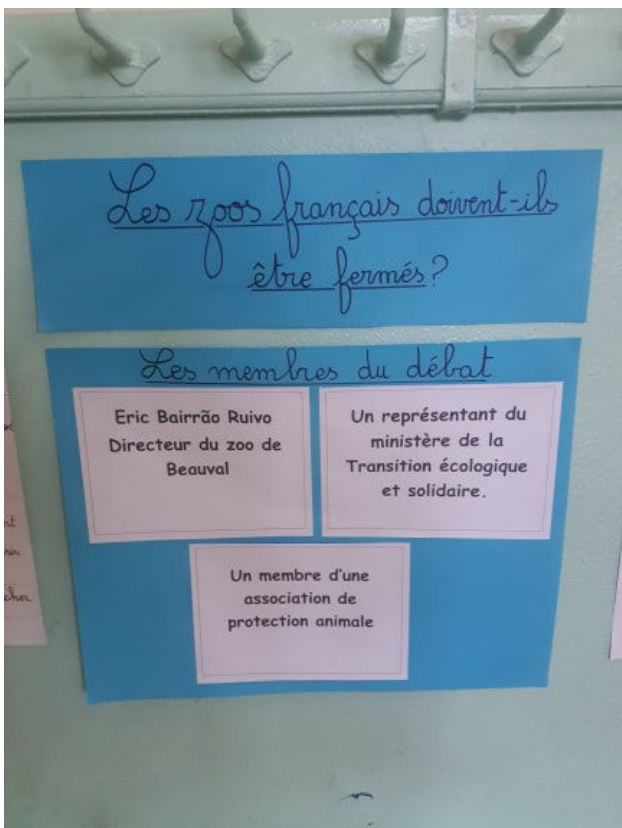 Les zoos français doivent-ils
être fermés?
Les membres du débat
Eric Bairrão Ruivo
Directeur du zoo de
Beauval
Un représentant du
ministère de la
Transition écologique
et solidaire.
Un membre d'une
association de
protection animale